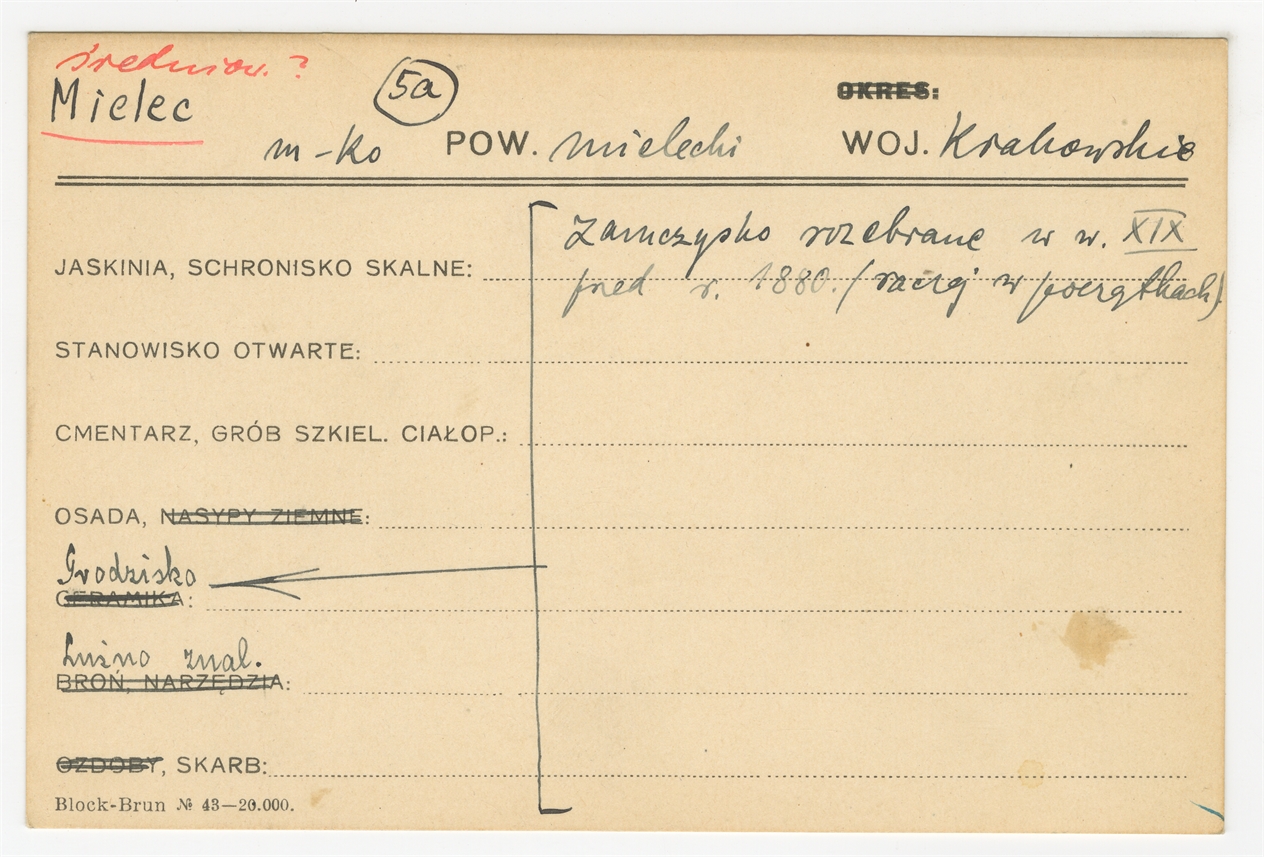 średniow. ?
Mielec
5a
OKRES:
m-ko POW. mielecki WOJ. Krakowskie
Zamczysko rozebrane w w. XIX
JASKINIA, SCHRONISKO SKALNE:
przed r. 1880. (raczej w początkach)
STANOWISKO OTWARTE:
CMENTARZ, GRÓB SZKIEL. CIAŁOP.:
OSADA, NASYPY ZIEMNE:
Grodzisko
CERAMIKA:
Luźno znal.
BROŃ, NARZĘDZIA:
OZDOBY, SKARB:
Block-Brun № 43—20.000.